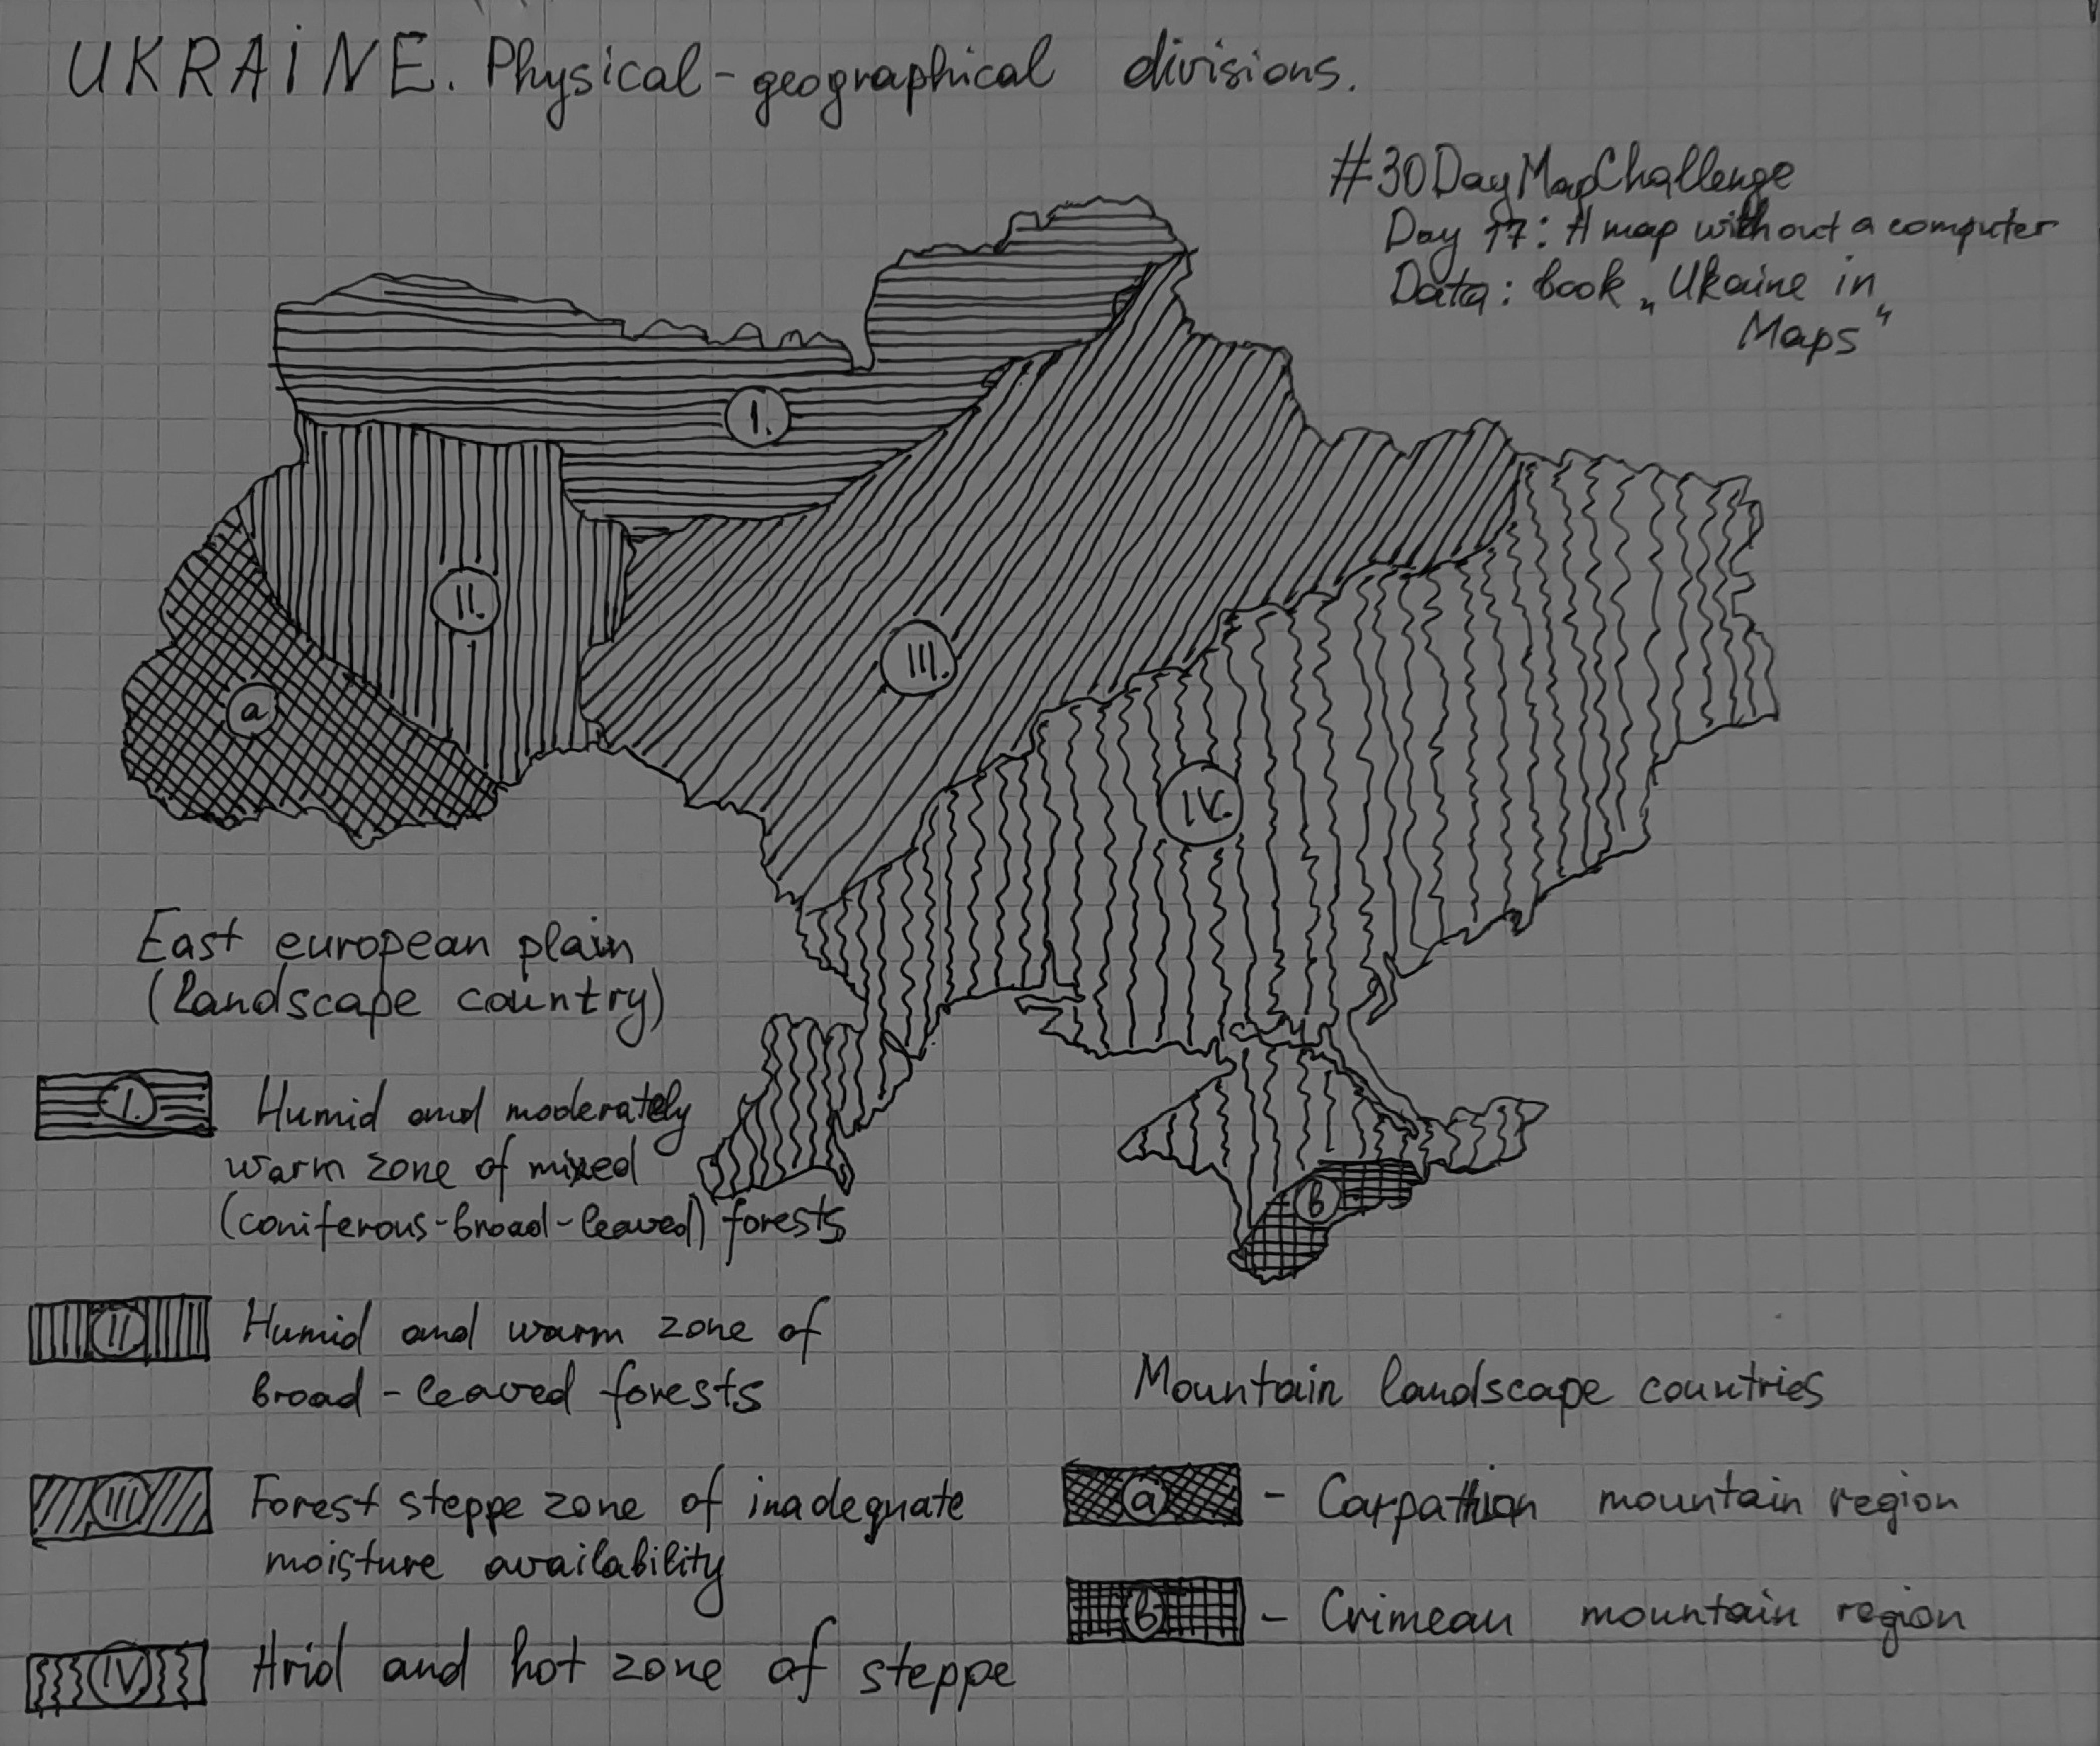 UKRAINE. Physical-geographical divisions.
#30DayMapChallenge
Day 17: A map without a computer
Data: book „Ukraine in
Maps"
I.
II.
III.
a
IV.
b
East european plain
(landscape country)
I. Humid and moderately
warm zone of mixed
(coniferous-broad-leaved) forests
II Humid and warm zone of
broad-leaved forests
III Forest steppe zone of inadequate
moisture availability
IV. Arid and hot zone of steppe
Mountain landscape countries
a - Carpathian mountain region
b - Crimean mountain region